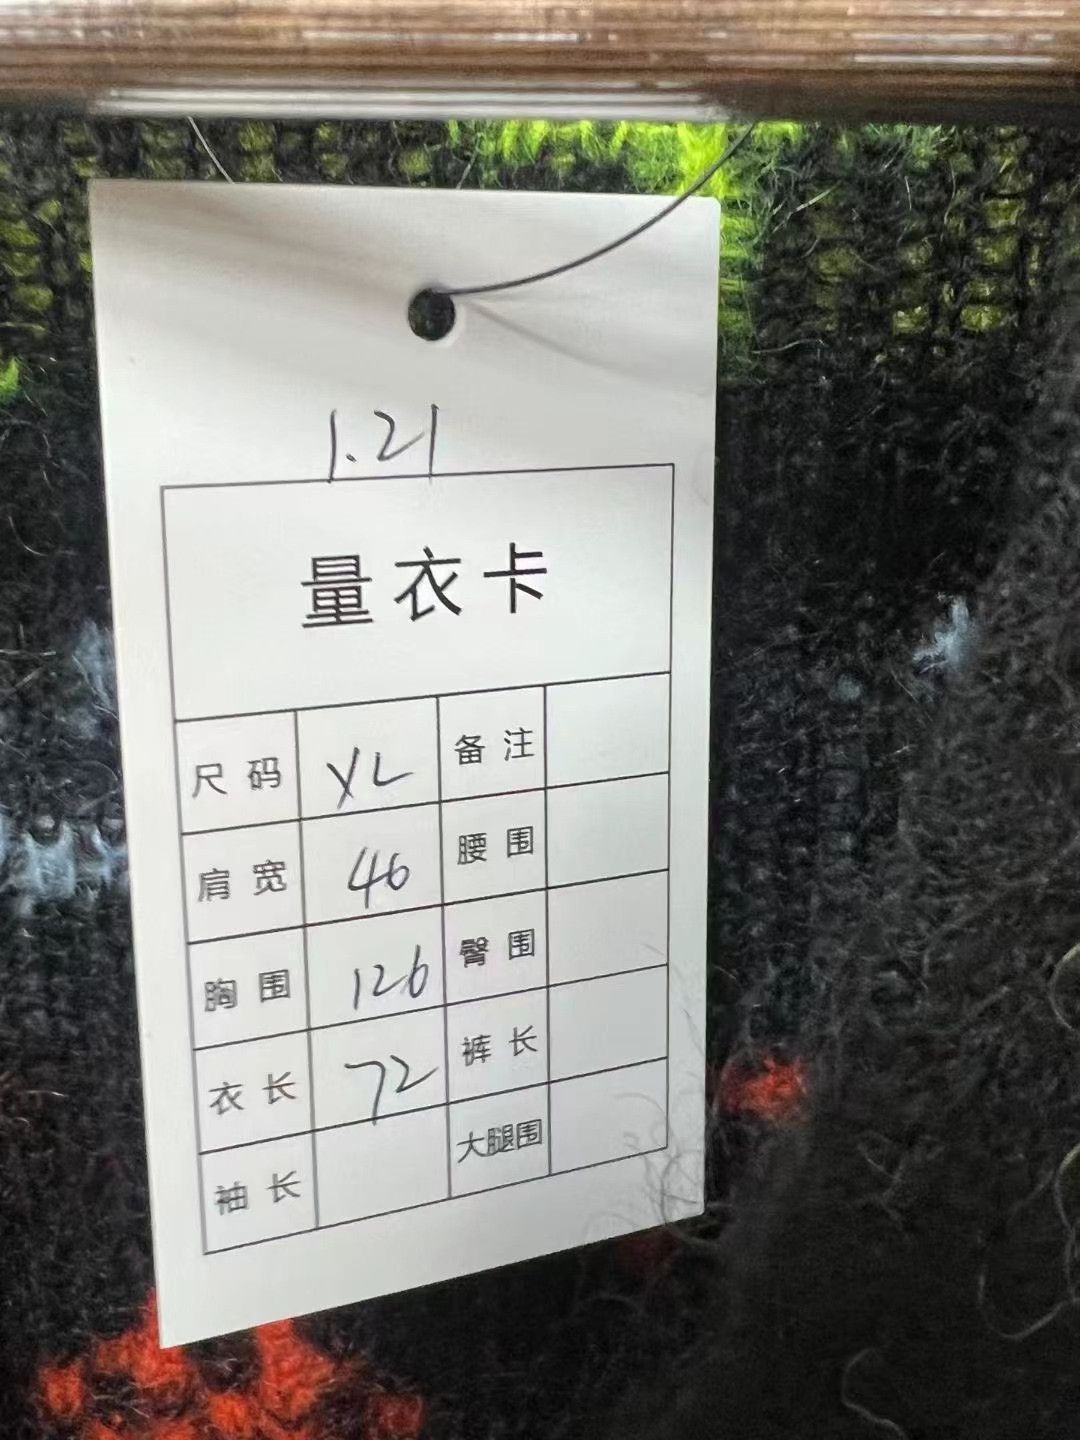 1.21
量衣卡
尺码 XL 备注
肩宽 46 腰围
胸围 126 臀围
衣长 72 裤长
袖长 大腿围